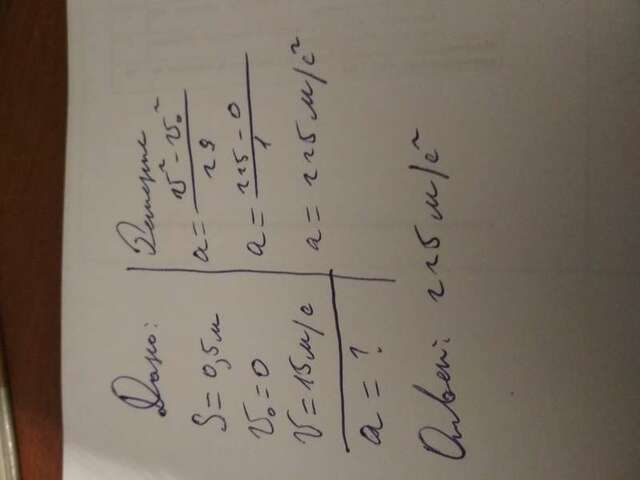 Дано:
S = 0,5 м
V₀ = 0
V = 15 м/с
a = ?
Решение
a = (V² - V₀²) / 2S
a = (225 - 0) / 1
a = 225 м/с²
Ответ: 225 м/с²